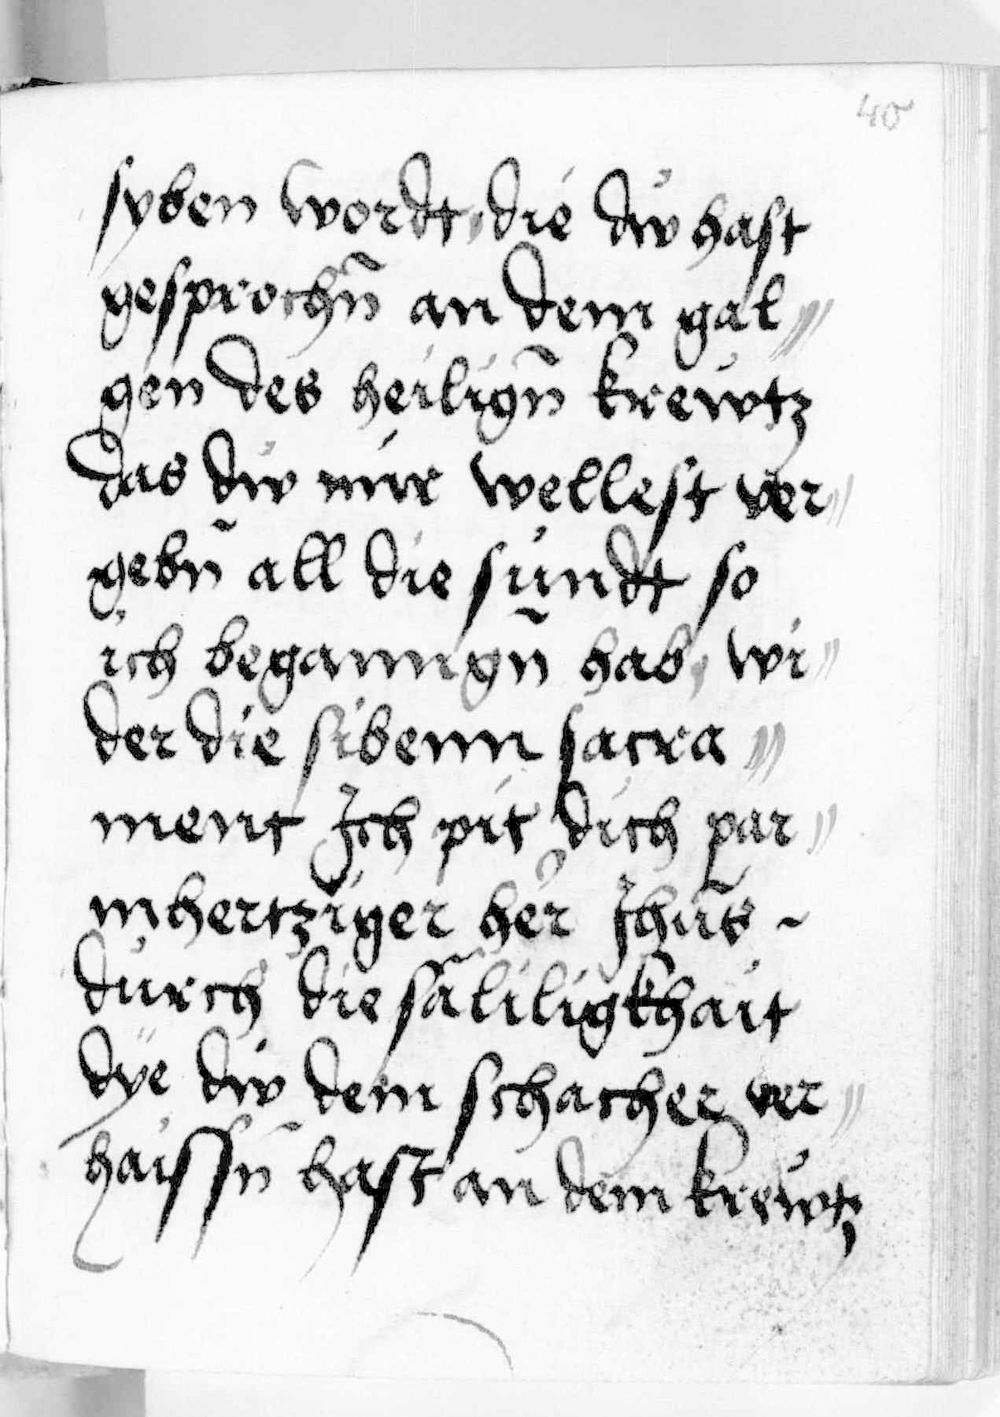 40
syben wordt, die dw hast
gesprochn̄ an dem gal〃
gen des heilign̄ krewtz
das dw mir wellest ver〃
gebn̄ all die sündt so
ich beganngn̄ hab, wi〃
der die sibenn sacra〃
ment Ich pit dich par〃
mhertziger her Jhūs ~
durch die säliligkhait
dÿe dw dem schacher ver〃
haissn̄ hast an dem krewtz